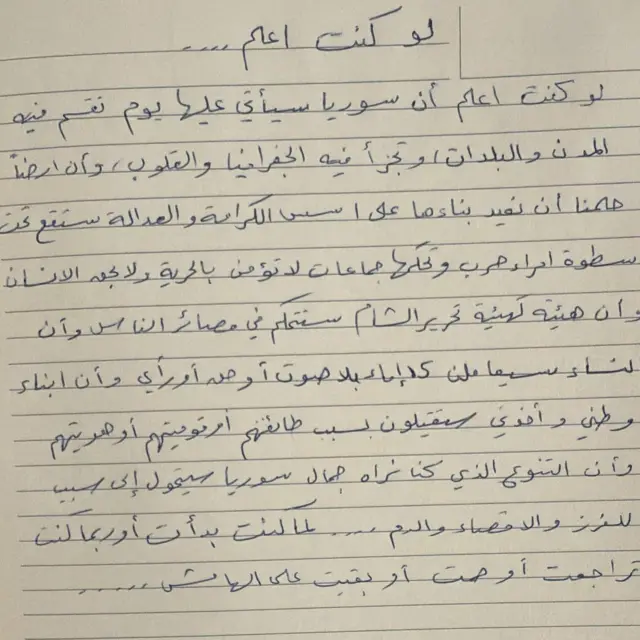 لو كنت اعلم ....
لو كنت اعلم أن سوريا سيأتي عليها يوم تقسم فيه
المدن والبلدات، وتجزأ فيه الجغرافيا والقلوب، وأن ارضاً
حلمنا ان نعيد بناءها على اسس الكرامة والعدالة ستقع تحت
سطوة امراء حرب وتحكمها جماعات لا تؤمن بالحرية ولا بحق الانسان
وأن هيئة كهيئة تحرير الشام ستتحكم في مصائر الناس وأن
النساء سيعاملن كإماء بلا صوت أو حق أو رأي وأن ابناء
وطني وأخوتي سيقتلون بسبب طائفتهم أو قوميتهم أو هويتهم
وأن التنوع الذي كنا نراه جمال سوريا سيتحول إلى سبب
للفرز والاقصاء والدم .... لما كنت بدأت أو ربما كنت
تراجعت أو صمت أو بقيت على الهامش .....